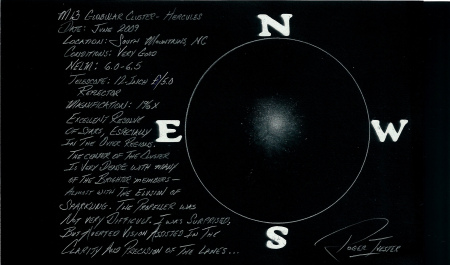 M13 Globular Cluster - Hercules
Date: June 2009
Location: South Mountains, NC
Conditions: Very Good
NELM: 6.0-6.5
Telescope: 12-Inch f/5.0
Reflector
Magnification: 196x
Excellent Resolve
of Stars, Especially
In The Outer Regions.
The Center of The Cluster
Is Very Dense with many
of The Brighter members -
Almost with The Elusion of
Sparkling. The Propeller was
Not Very Difficult. I was Surprised,
But Averted Vision Assisted In The
Clarity And Precision of The Lanes...
N
E
W
S
Roger Ivester